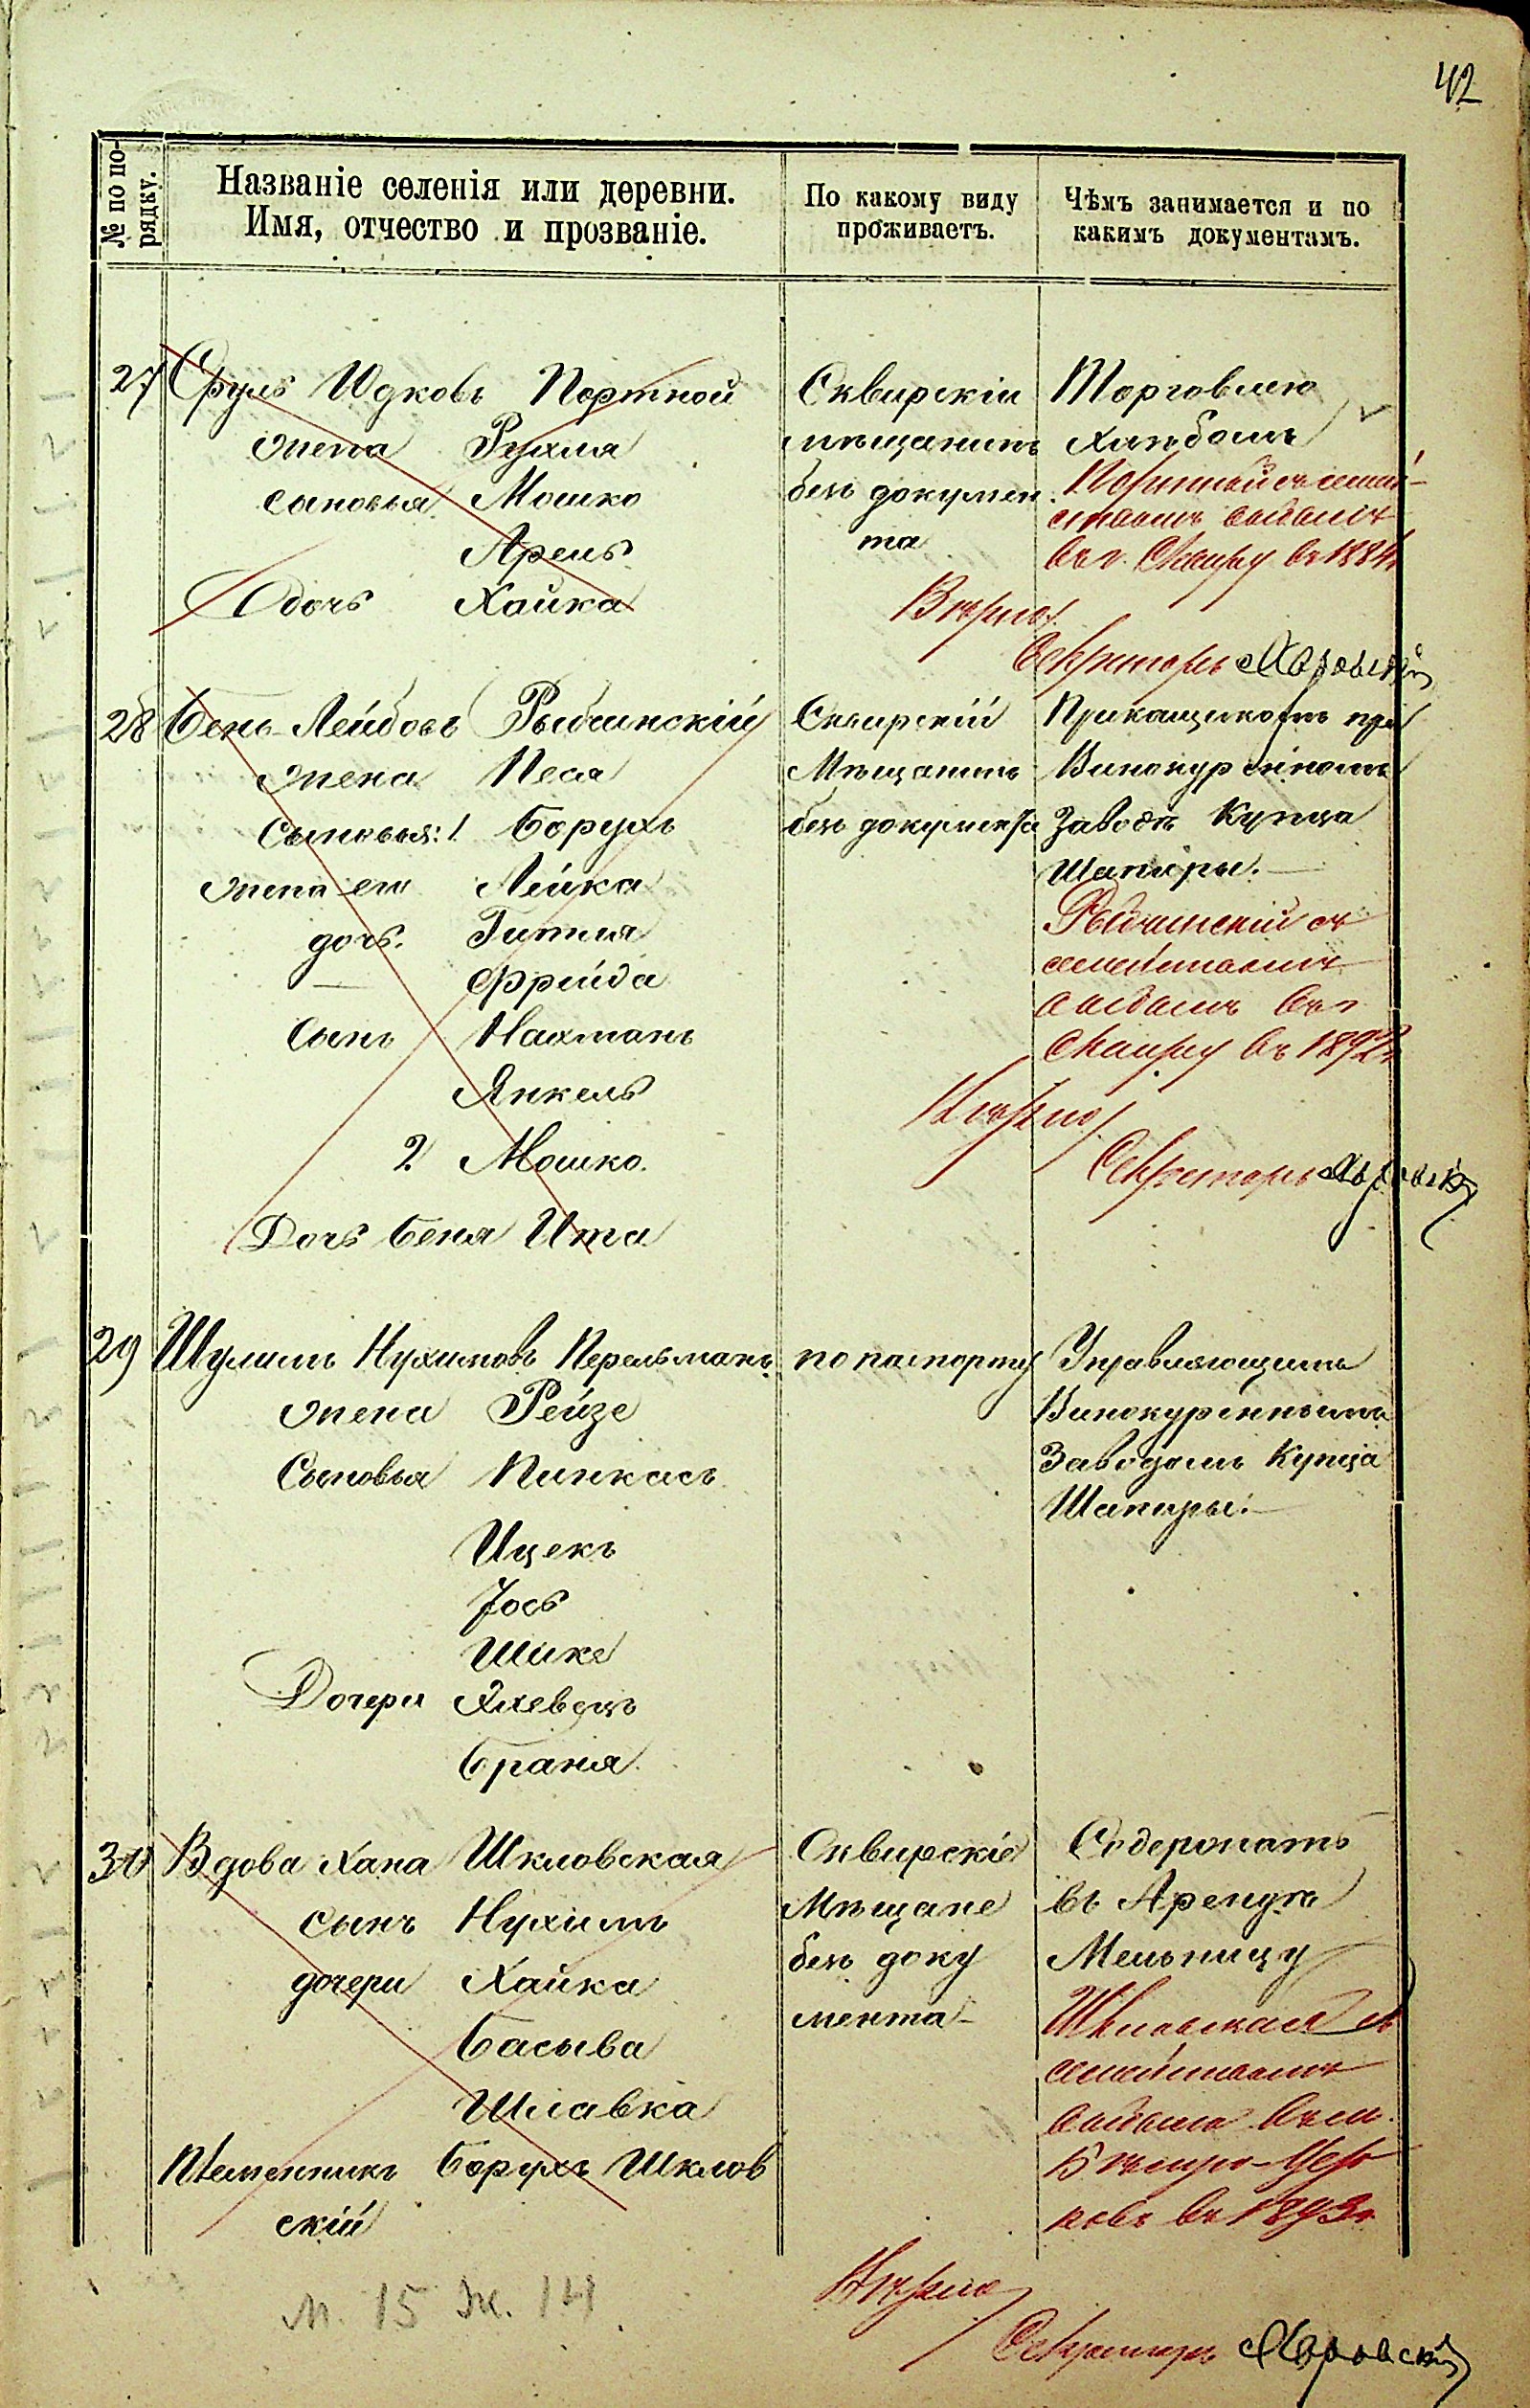 42
№ по по-
рядку.
Названіе селенія или деревни.
Имя, отчество и прозваніе.
По какому виду
проживаетъ.
Чѣмъ занимается и по
какимъ документамъ.
27 Сруль Юдковъ Портной
жена Рухля
сыновья Мошко
Арель
дочь Хайка
Сквирскій
мѣщанинъ
безъ докумен
та
Торговлею
хлѣбомъ
Портной съ семей-
ствомъ выбылъ
въ г. Сквиру въ 1884 г.
Вѣрно:
Секретарь
28 Бень Лейбовъ Рыбчинскій
жена Песя
Сыновья: 1 Борухъ
жена его Лейка
дочь. Гитля
— Фрейда
Сынъ Нахманъ
Янкель
2 Мошко.
Дочь Беня Ита
Сквирскій
Мѣщанинъ
безъ документа
Прикащикомъ при
Винокуренномъ
Заводѣ Купца
Шапиры.—
Рыбчинскій съ
семействомъ
выбылъ въ г.
Сквиру въ 1892 г.
Вѣрно:
Секретарь
29 Шулимъ Нухимовъ Перельманъ
жена Рейзе
Сыновья Пинкасъ
Ицекъ
Іось
Шике
Дочери
Браня.
по паспорту
Управляющимъ
Винокуреннымъ
Заводомъ Купца
Шапиры.—
30 Вдова Хана Шкловская
сынъ Нухимъ
дочери Хайка
Басыва
Шлавка
Племенникъ Борухъ Шклов
скій
Сквирскіе
Мѣщане
безъ доку
мента
Содержатъ
въ Арендѣ
Мельницу
Шкловская съ
семействомъ
выбыла въ м.
Бѣлую-Цер
ковь въ 1893 г.
Вѣрно
Секретарь
м. 15 ж. 14